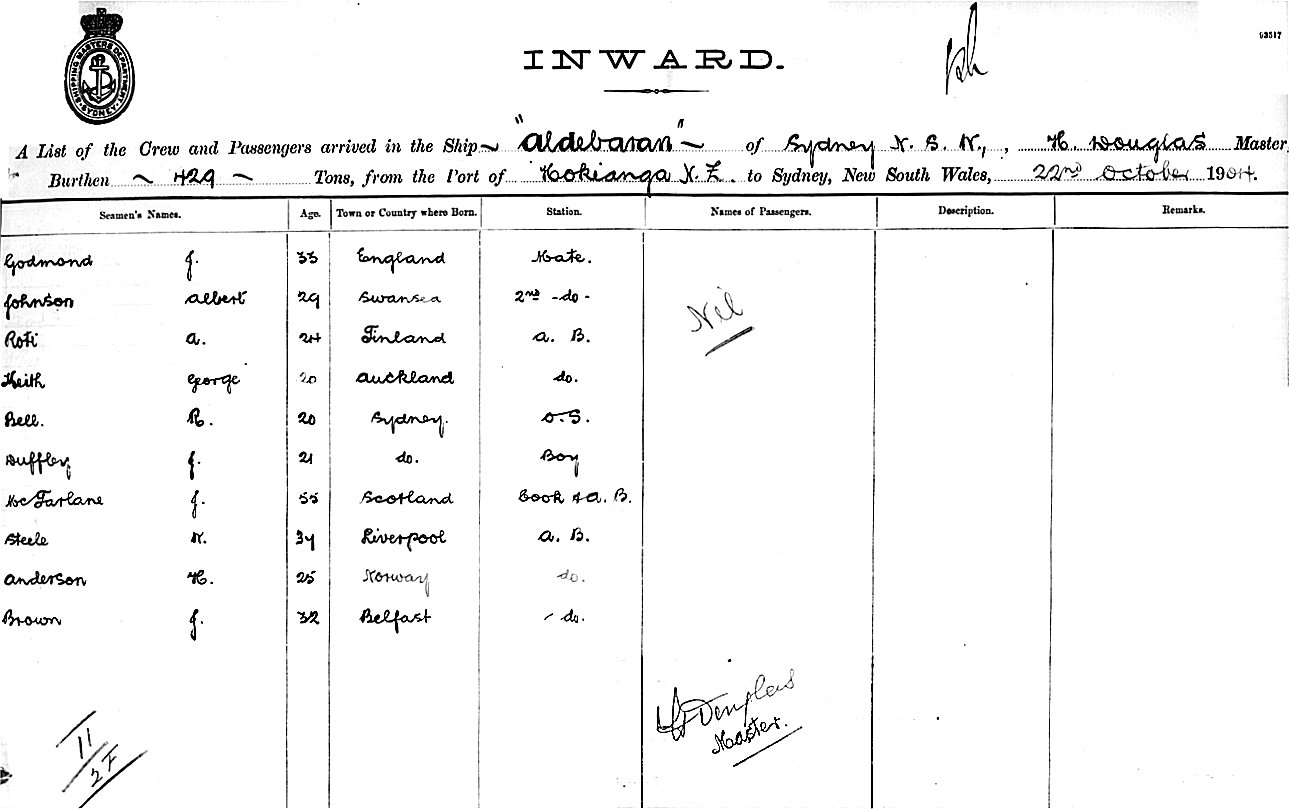 SHIPPING MASTERS DEPARTMENT
SYDNEY
63517
INWARD.
A List of the Crew and Passengers arrived in the Ship ~ "Aldebaran" ~ of Sydney N. S. W., , H. Douglas Master
Burthen ~ 429 ~ Tons, from the Port of Hokianga N.Z. to Sydney, New South Wales, 22nd October 1904.
Seamen's Names. Age. Town or Country where Born. Station. Names of Passengers. Description. Remarks.
Godmond J. 33 England Mate.
Johnson Albert 29 Swansea 2nd - do -
Nil
Roti A. 24 Finland A. B.
Keith George 20 Auckland do.
Bell. R. 20 Sydney. O.S.
Duffley J. 21 do. Boy
McFarlane J. 55 Scotland Cook & A. B.
Steele W. 34 Liverpool A. B.
Anderson H. 25 Norway do.
Brown J. 32 Belfast - do.
H Douglas
Master.
11
2F